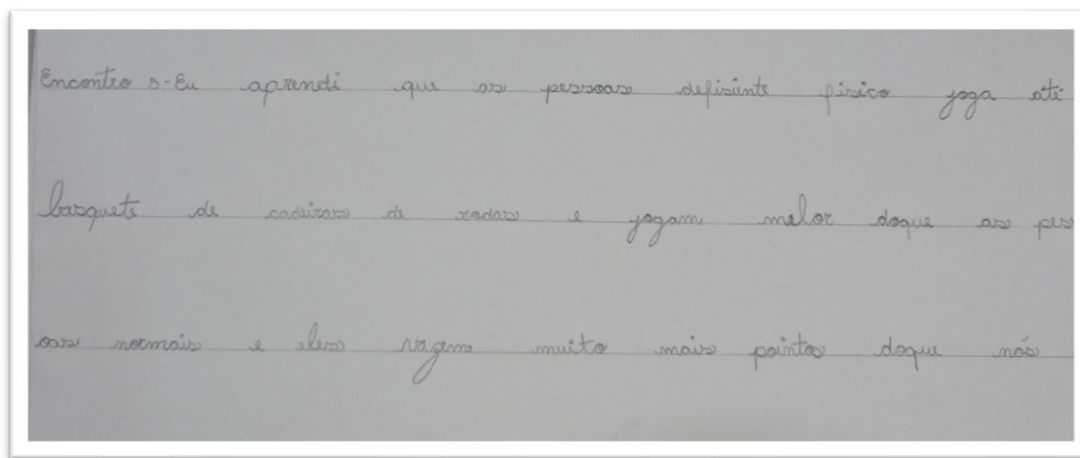 Encontro 5-Eu aprendi que as pessoas defisiente fisico joga até
basquete de cadeiras de rodas e jogam melor doque as pes
oas normais e eles fazem muito mais pointos doque nós